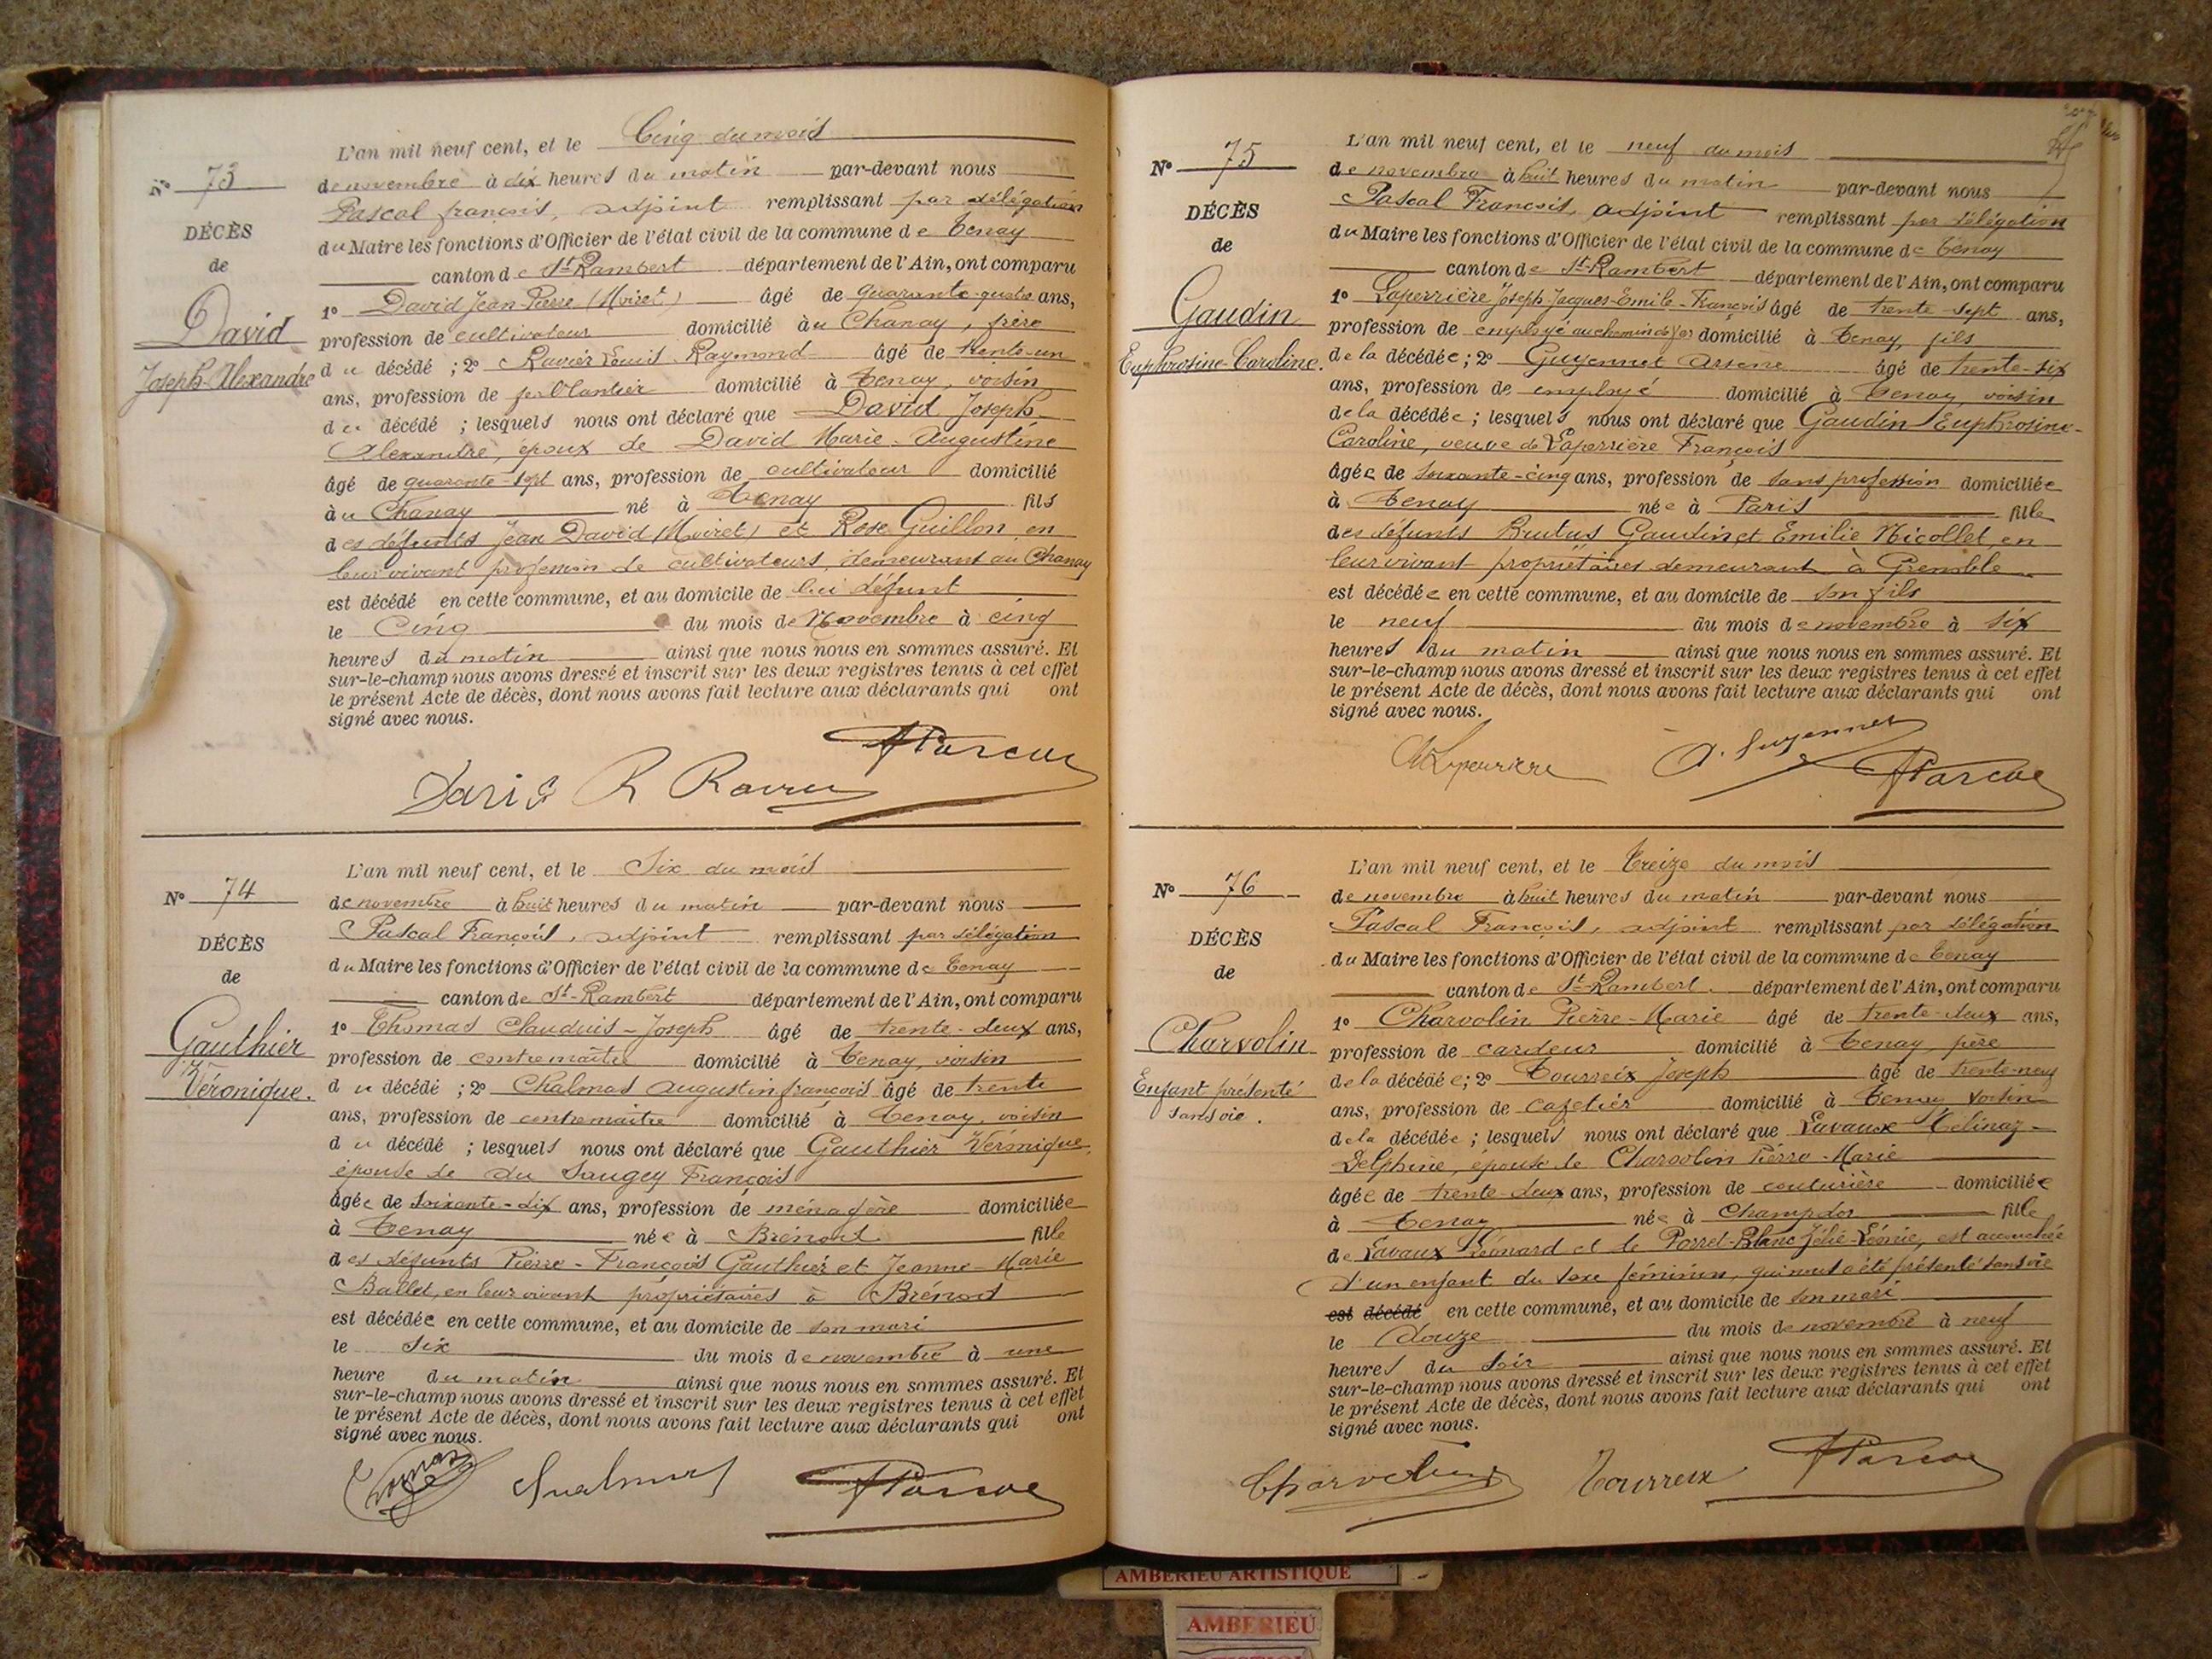 N° 73
DÉCÈS
de
David
Joseph-Alexandre
L'an mil neuf cent, et le Cinq du mois
de novembre à dix heures du matin par-devant nous
Pascal françois, adjoint remplissant par délégation
du Maire les fonctions d'Officier de l'état civil de la commune de Tenay
canton de St-Rambert département de l'Ain, ont comparu
1° David Jean-Pierre (Moiret) âgé de quarante-quatre ans,
profession de cultivateur domicilié au Chanay, frère
du décédé ; 2° Ravier Louis Raymond âgé de trente-un
ans, profession de ferblantier domicilié à Tenay, voisin
du décédé ; lesquels nous ont déclaré que David Joseph-
Alexandre, époux de David Marie-Augustine
âgé de quarante-sept ans, profession de cultivateur domicilié
au Chanay né à Tenay fils
des défunts Jean David (Moiret) et Rose Guillon, en
leur vivant profession de cultivateurs, demeurant au Chanay
est décédé en cette commune, et au domicile de lui défunt
le Cinq du mois de Novembre à cinq
heures du matin ainsi que nous nous en sommes assuré. Et
sur-le-champ nous avons dressé et inscrit sur les deux registres tenus à cet effet
le présent Acte de décès, dont nous avons fait lecture aux déclarants qui ont
signé avec nous.
David R Ravier FPascal
N° 74
DÉCÈS
de
Gauthier
Véronique.
L'an mil neuf cent, et le Six du mois
de novembre à huit heures du matin par-devant nous
Pascal François, adjoint remplissant par délégation
du Maire les fonctions d'Officier de l'état civil de la commune de Tenay
canton de St-Rambert département de l'Ain, ont comparu
1° Thomas Claudius-Joseph âgé de trente-deux ans,
profession de contremaître domicilié à Tenay, voisin
du décédé ; 2° Chalmas Augustin françois âgé de trente
ans, profession de contremaître domicilié à Tenay, voisin
du décédé ; lesquels nous ont déclaré que Gauthier Véronique,
épouse de du Saugey François
âgée de soixante-dix ans, profession de ménagère domiciliée
à Tenay née à Brénod fille
des défunts Pierre-François Gauthier et Jeanne-Marie
Ballet, en leur vivant propriétaires à Brénod
est décédée en cette commune, et au domicile de son mari
le six du mois de novembre à une
heure du matin ainsi que nous nous en sommes assuré. Et
sur-le-champ nous avons dressé et inscrit sur les deux registres tenus à cet effet
le présent Acte de décès, dont nous avons fait lecture aux déclarants qui ont
signé avec nous.
Thomas Chalmas FPascal
N° 75
DÉCÈS
de
Gaudin
Euphrosine-Caroline.
L'an mil neuf cent, et le neuf du mois
de novembre à huit heures du matin par-devant nous
Pascal François, adjoint remplissant par délégation
du Maire les fonctions d'Officier de l'état civil de la commune de Tenay
canton de St-Rambert département de l'Ain, ont comparu
1° Laperrière Joseph-Jacques-Emile-François âgé de trente-sept ans,
profession de employé au chemin de fer domicilié à Tenay, fils
de la décédée ; 2° Guyennet Arsène âgé de trente-six
ans, profession de employé domicilié à Tenay, voisin
de la décédée ; lesquels nous ont déclaré que Gaudin Euphrosine-
Caroline, veuve de Laperrière François
âgée de soixante-cinq ans, profession de sans profession domiciliée
à Tenay née à Paris fille
des défunts Brutus Gaudin et Emilie Nicollet, en
leur vivant propriétaires demeurant à Grenoble
est décédée en cette commune, et au domicile de son fils
le neuf du mois de novembre à six
heures du matin ainsi que nous nous en sommes assuré. Et
sur-le-champ nous avons dressé et inscrit sur les deux registres tenus à cet effet
le présent Acte de décès, dont nous avons fait lecture aux déclarants qui ont
signé avec nous.
Laperrière A. Guyennet FPascal
N° 76
DÉCÈS
de
Charvolin
Enfant présenté
sans vie.
L'an mil neuf cent, et le treize du mois
de novembre à huit heures du matin par-devant nous
Pascal François, adjoint remplissant par délégation
du Maire les fonctions d'Officier de l'état civil de la commune de Tenay
canton de St-Rambert. département de l'Ain, ont comparu
1° Charvolin Pierre-Marie âgé de trente-deux ans,
profession de cardeur domicilié à Tenay, père
de la décédée ; 2° Tourreix Joseph âgé de trente-neuf
ans, profession de cafetier domicilié à Tenay voisin
de la décédée ; lesquels nous ont déclaré que Lavaux Mélinaz-
Delphine, épouse de Charvolin Pierre-Marie
âgée de trente-deux ans, profession de couturière domiciliée
à Tenay née à Champdor fille
de Lavaux Léonard et de Porret-Blanc Zélie-Léonie, est accouchée
d'un enfant du sexe féminin, qui nous a été présenté sans vie
est décédé en cette commune, et au domicile de son mari
le douze du mois de novembre à neuf
heures du soir ainsi que nous nous en sommes assuré. Et
sur-le-champ nous avons dressé et inscrit sur les deux registres tenus à cet effet
le présent Acte de décès, dont nous avons fait lecture aux déclarants qui ont
signé avec nous.
Charvolin Tourreix FPascal
AMBERIEU ARTISTIQUE
AMBERIEU